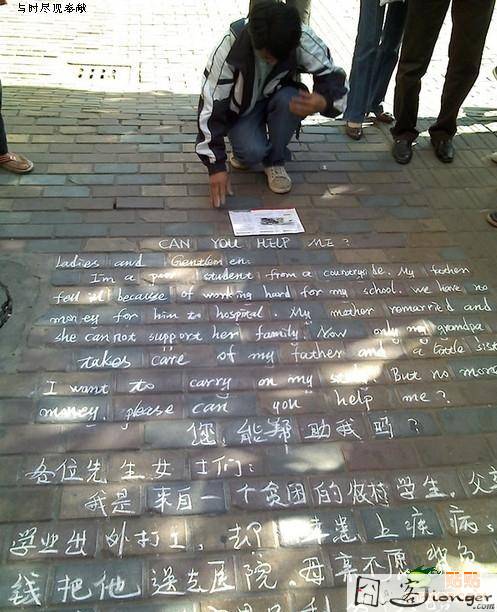 与时尽观奉献
CAN YOU HELP ME?
Ladies and Gentlemen:
I'm a poor student from a countryside. My father
fell ill because of working hard for my school. we have no
money for him to hospital. My mother romarried and
she can not support her family. Now only my grandpa
takes care of my father and a little sist
I want to carry on my study. But no more
money. please can you help me?
您,能帮助我吗?
各位先生女士们:
我是来自一个贫困的农村学生,父
学业出外打工,却患上疾病,
钱把他送去医院.母亲不愿
囧客
贴贴
Jionger
.com